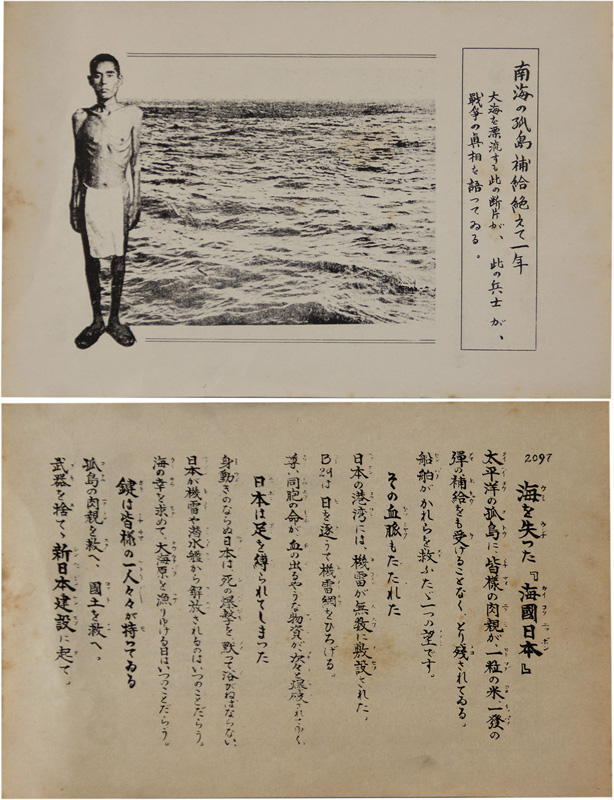 南海の孤島補給絶えて一年
大海を漂流する此の断片が、此の兵士が、
戦争の真相を語つてゐる。
2097
海を失つた『海國日本』
太平洋の孤島に、皆様の肉親が、一粒の米、一發の
彈の補給をも受けることなく、とり残されてゐる。
船舶がかれらを救ふたゞ一つの望です。
その血脈もたたれた
日本の港湾には、機雷が無数に敷設された。
B29は日を逐うて機雷網をひろげる。
尊い同胞の命が、血の出るやうな物資が、次々と爆破されてゆく、
日本は足を縛られてしまつた
身動きのならぬ日本は、死の爆撃を黙つて浴びねばならない、
日本が機雷や潜水艦から解放されるのはいつのことだらう。
海の幸を求めて、大海原を漁りゆける日はいつのことだらう。
鍵は皆様の一人々々が持つてゐる
孤島の肉親を救へ、國土を救へ。
武器を捨てゝ新日本建設に起て。